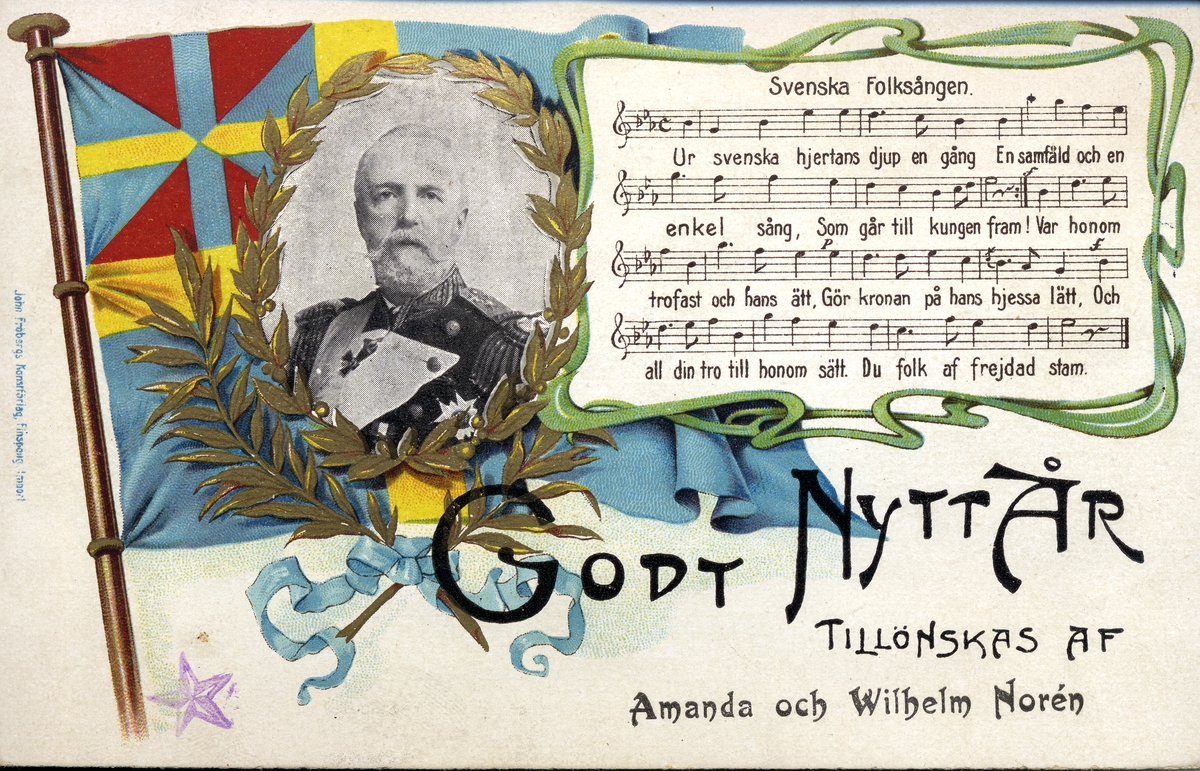 Svenska Folksången.
Ur svenska hjertans djup en gång En samfäld och en
enkel sång, Som går till kungen fram! Var honom
trofast och hans ätt, Gör kronan på hans hjessa lätt, Och
all din tro till honom sätt. Du folk af frejdad stam.
GODT NYTT ÅR
TILLÖNSKAS AF
Amanda och Wilhelm Norén
John Frobergs Konstförlag, Finspong